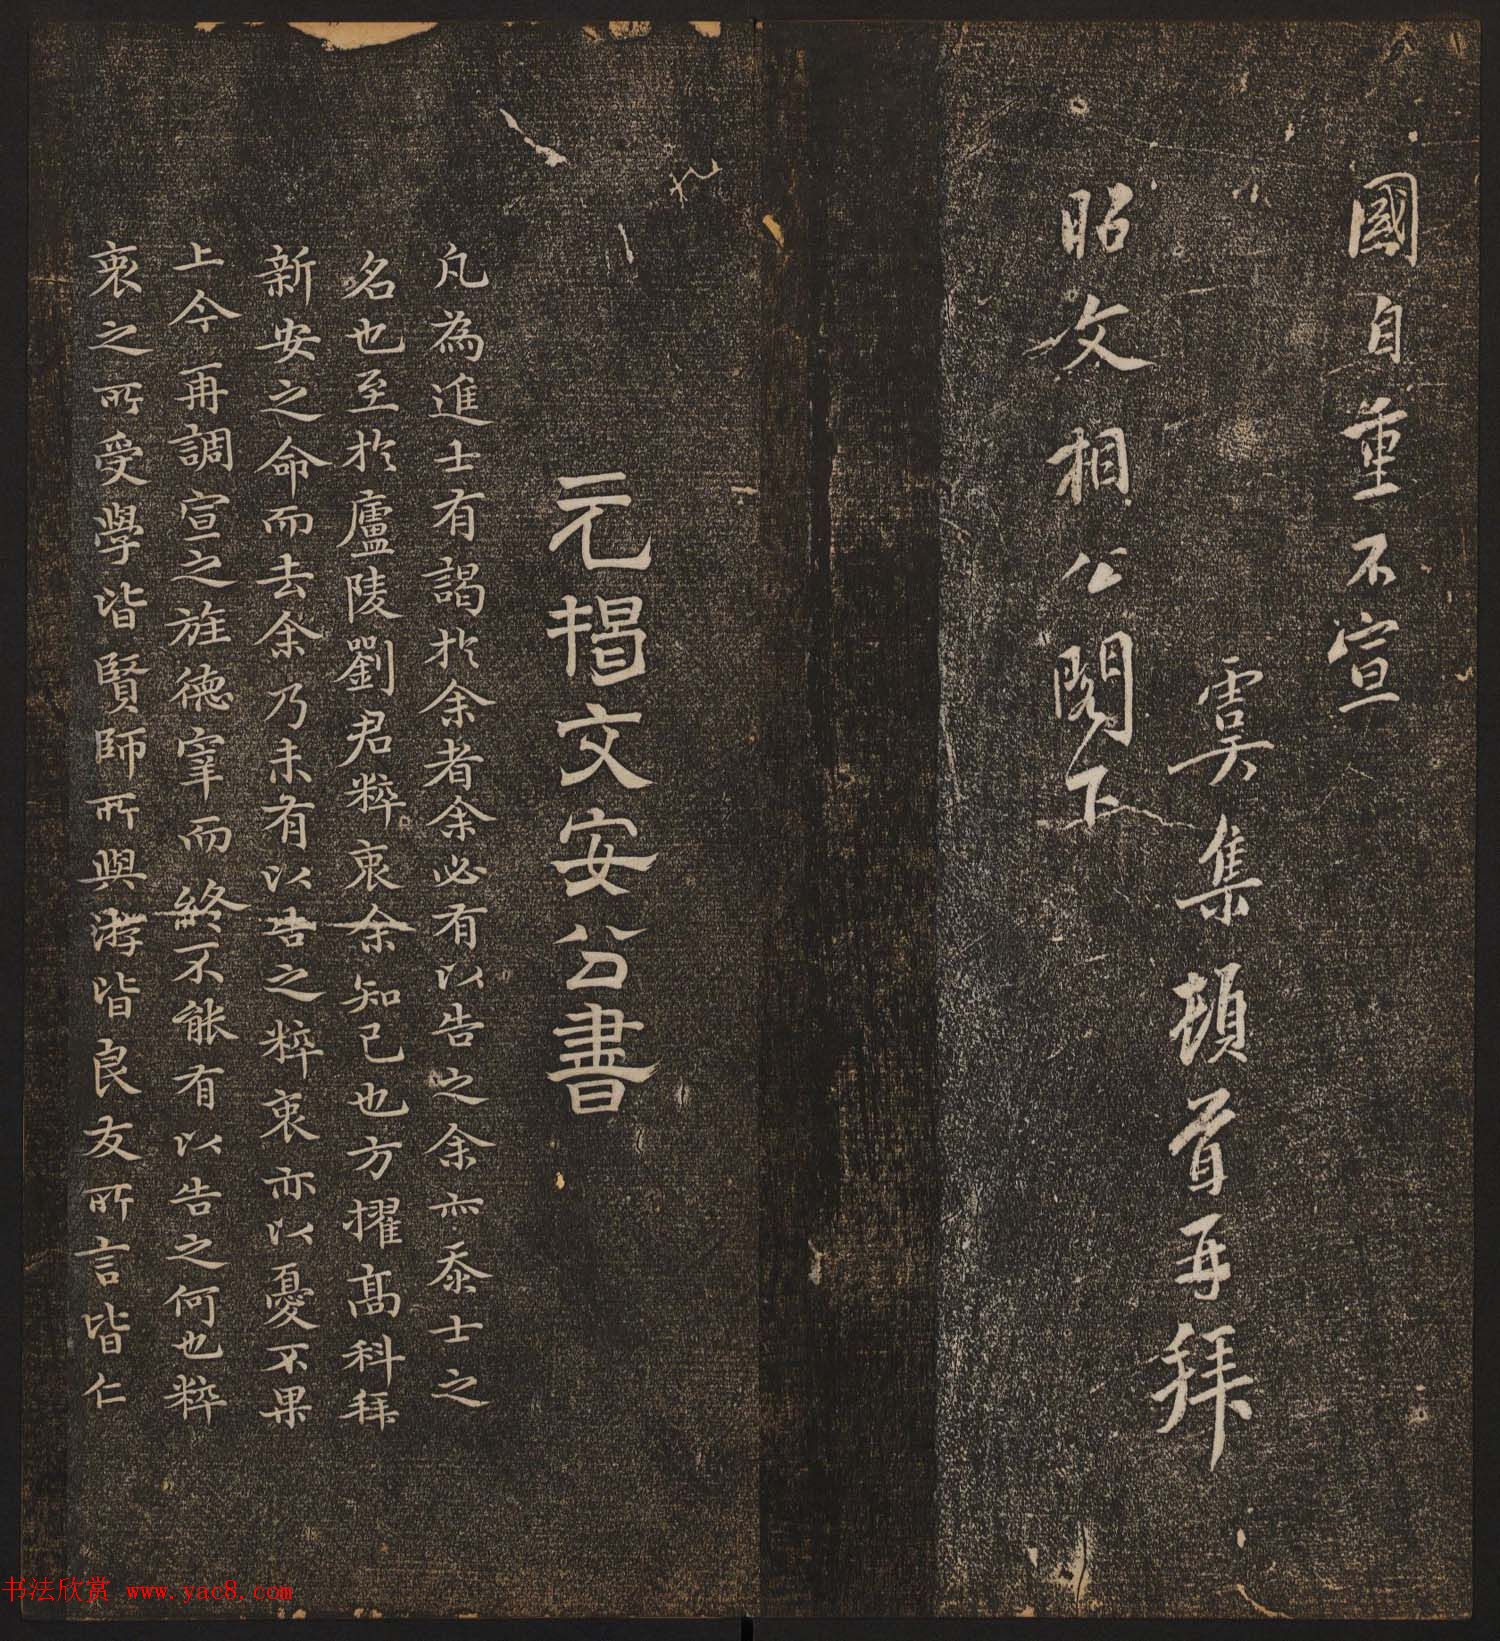 國自重不宣
虞集頓首再拜
昭文相公閣下
元揭文安公書
凡為進士有謁於余者余必有以告之余亦忝士之
名也至於廬陵劉君粹衷余知己也方擢髙科拜
新安之命而去余乃未有以告之粹衷亦以憂不果
上今再調宣之旌德宰而終不能有以告之何也粹
衷之所受學皆賢師所與游皆良友所言皆仁
书法欣赏 www.yac8.com